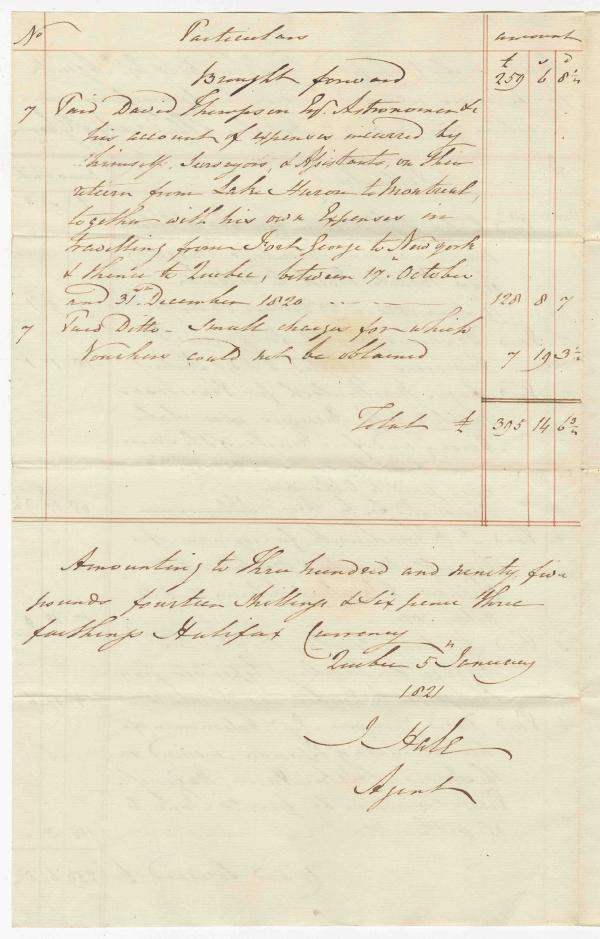 No Particulars amount
£ s d
Brought forward 259 6 8½
7 Paid David Thompson Esqr. Astronomer &c
his account of expenses incurred by
himself, Surveyors, & Assistants, on their
return from Lake Huron to Montreal,
together with his own Expenses in
travelling from Fort George to New york
& thence to Quebec, between 17th October
and 31st December 1820 128 8 7
7 Paid Ditto - small charges for which
Vouchers could not be obtained 7 19 3½
Total £ 395 14 6¾
Amounting to Three hundred and ninety five
pounds fourteen shillings & Six pence three
farthings Halifax Currency
Quebec 5th January
1821
J Hale
Agent